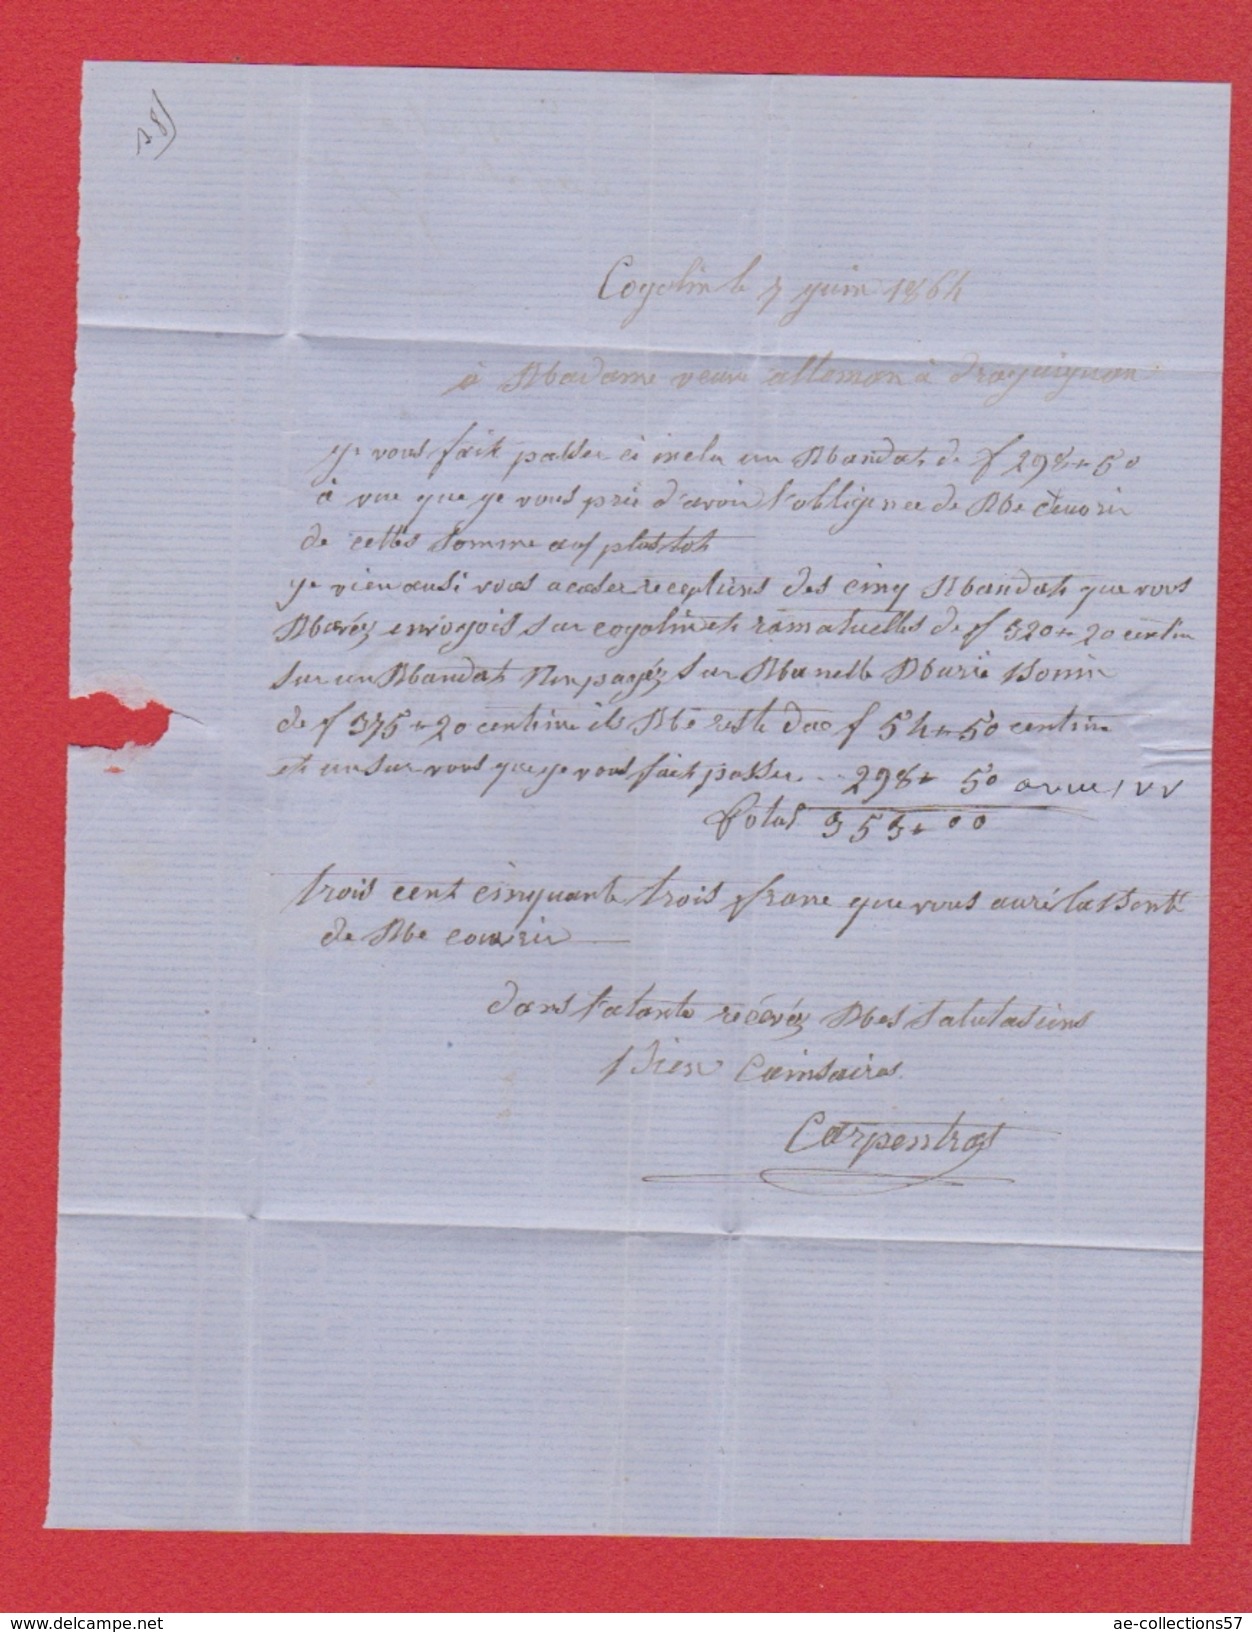 Cogolin le 7 juin 1864
à Madame veuve alleman à draguignan
je vous fait passer ci inclu un Mandat de f 298 + 50
à vue que je vous prie d'avoir l'obligence de Me
de cettes somme aus plus tot
je vien ausi vous acaser receptiens des cinq Mandat que vous
Mavéz envoyois sur cogolin et ramatuelles de f 320 + 20 centin
sur un Mandat Nenpayéz sur Marie Bonin
de f 375 + 20 centime ils Me reste due f 54 + 50 centime
et un sur vous que je vous fait passer ... 298 + 50 a vue
total 353 + 00
trois cent cinquante trois franc que vous auré la Bonté
de Me couvrir
dans l'atante recevéz Mes salutasiens
Bien
Carpentras
ae-collections57